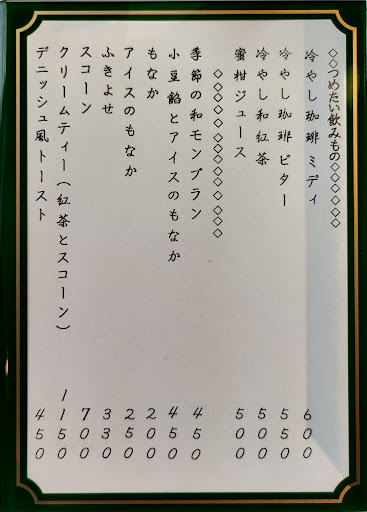 ◇◇つめたい飲みもの◇◇◇◇◇◇
冷やし珈琲ミディ 600
冷やし珈琲ビター 550
冷やし和紅茶 500
蜜柑ジュース 500
◇◇◇◇◇◇◇◇◇◇◇◇◇◇
季節の和モンブラン 450
小豆餡とアイスのもなか 450
もなか 200
アイスのもなか 250
ふきよせ 330
スコーン 700
クリームティー(紅茶とスコーン) 1150
デニッシュ風トースト 450